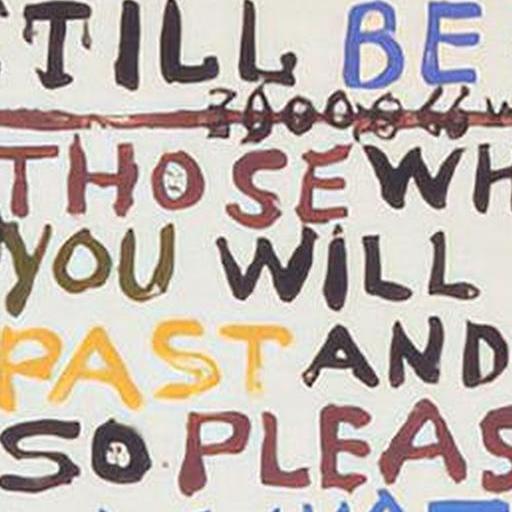 TILL BE
THOSE WH
YOU WILL
PAST AND
SO PLEAS